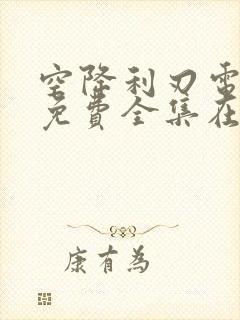 空降利刃電
免費全集在
康有為